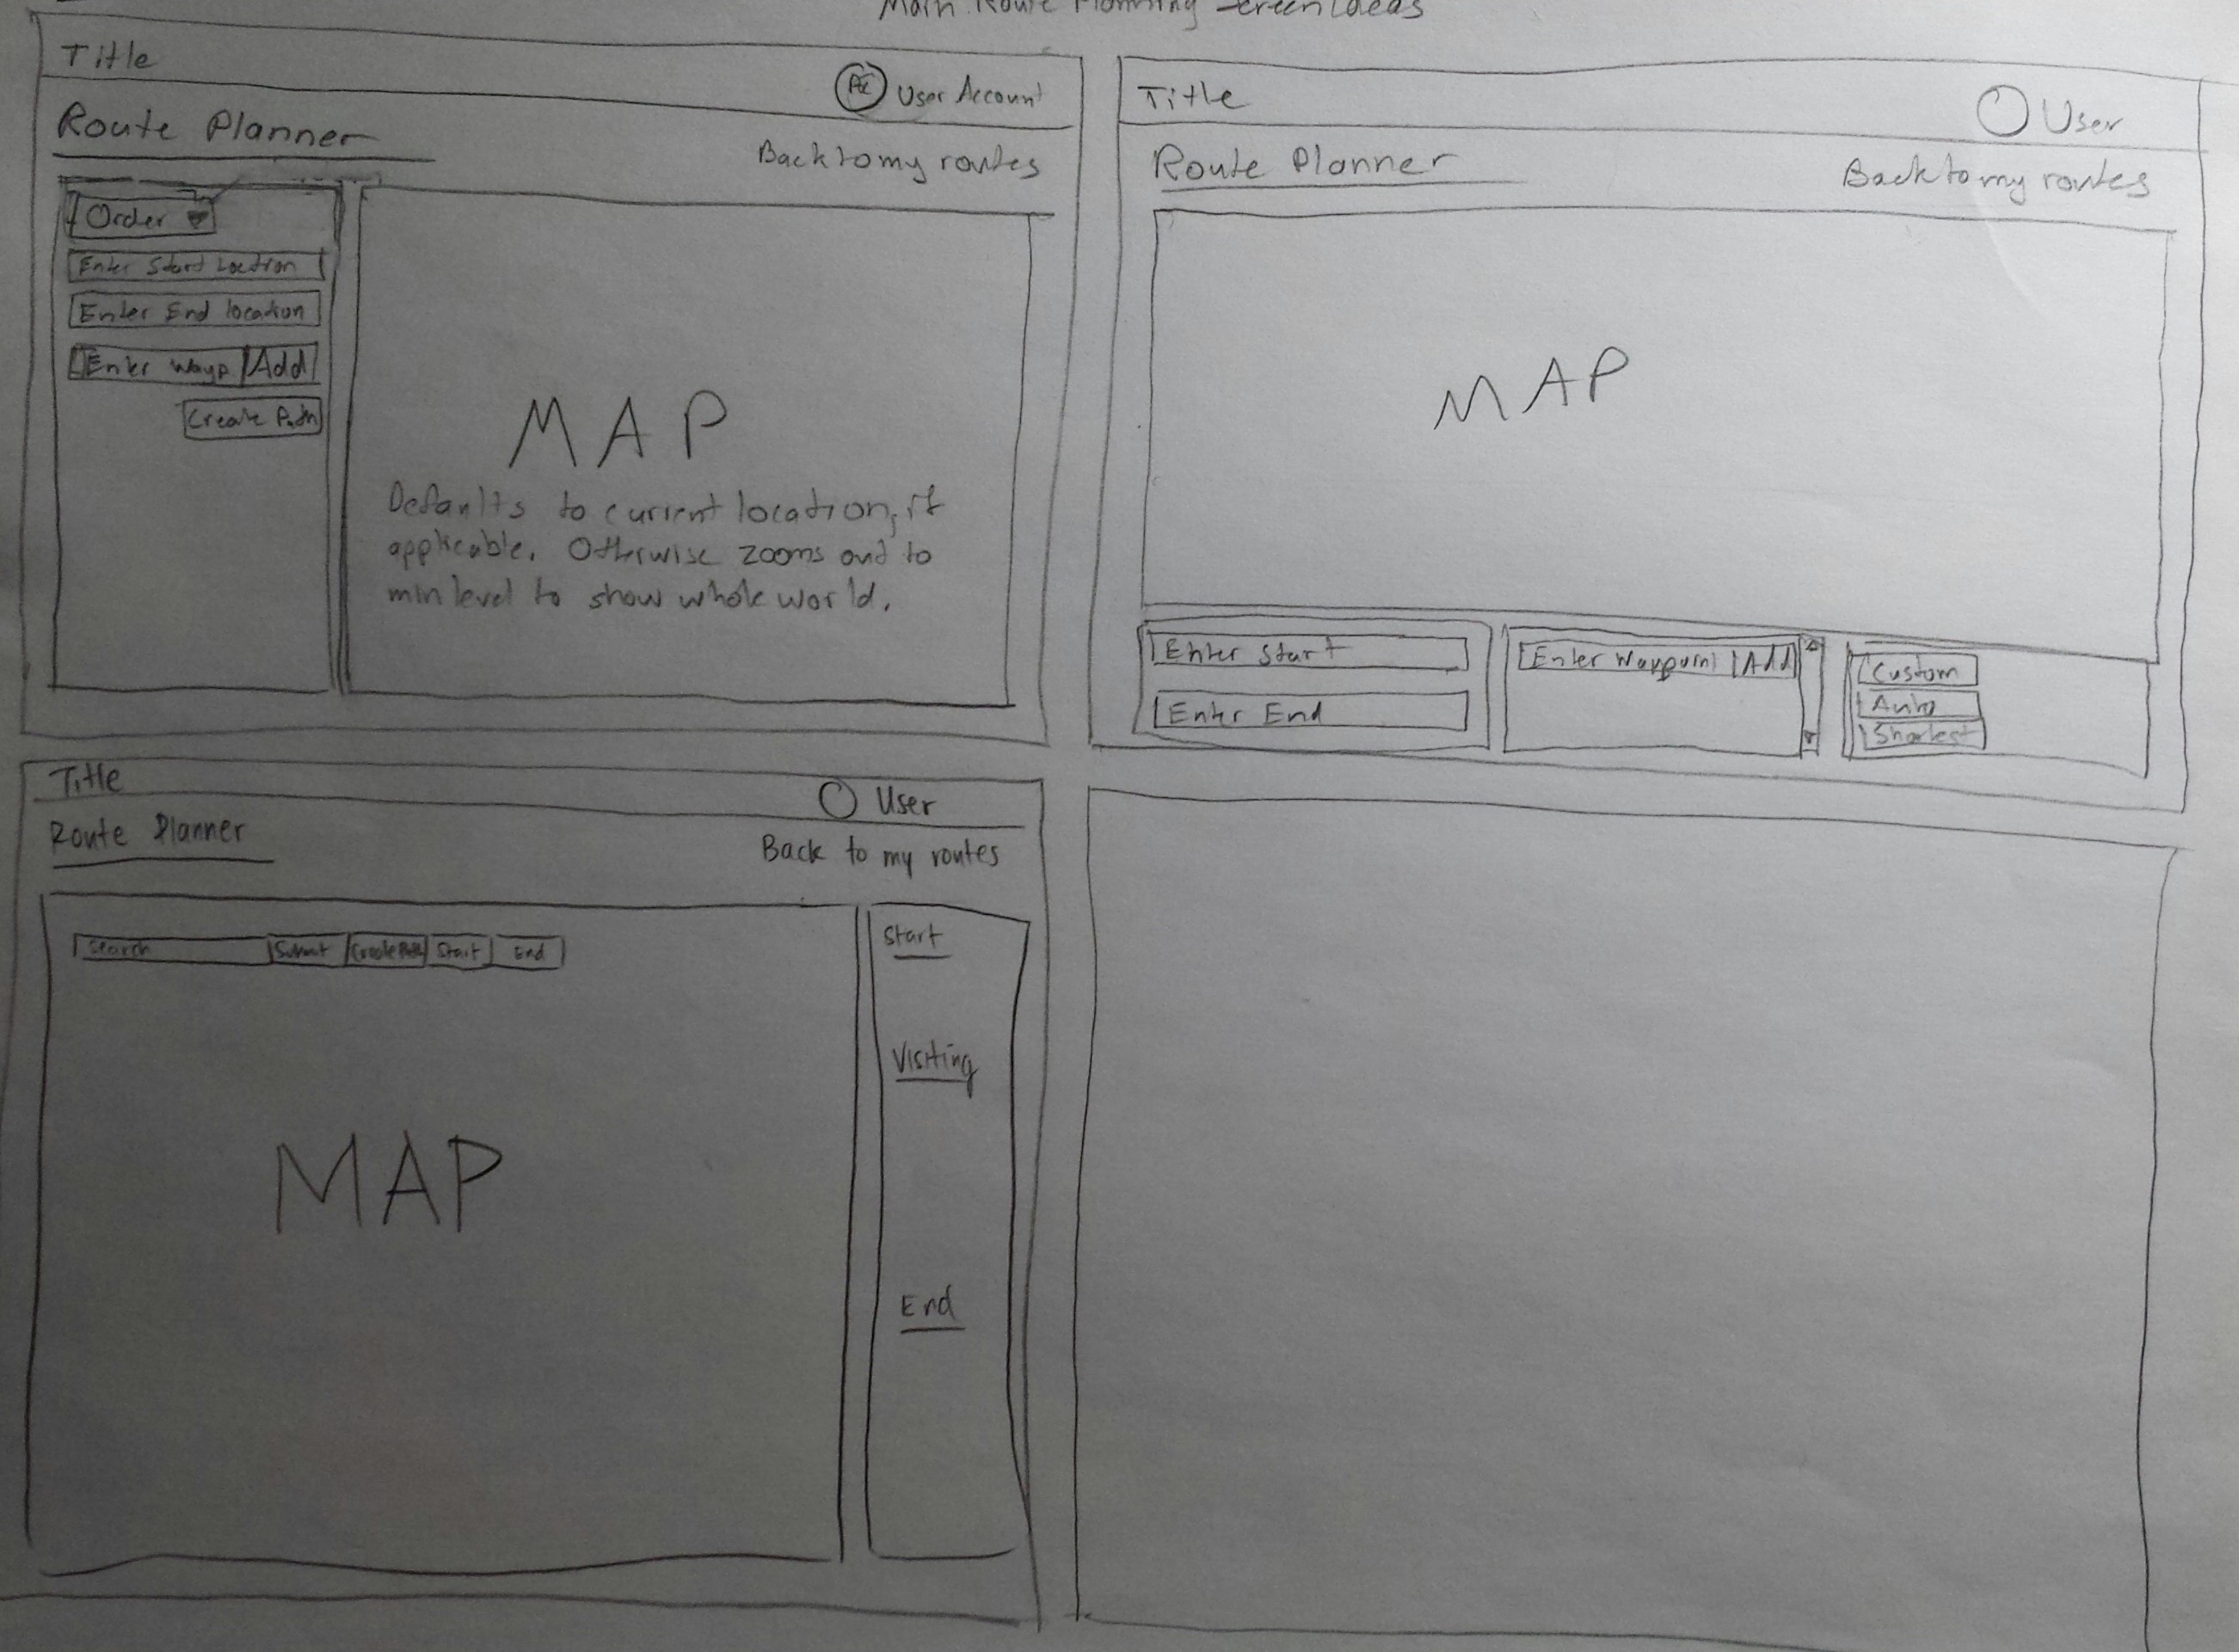 Main Route Planning Screen Ideas
Title
User Account
Route Planner
Back to my routes
Order
Enter Start Location
Enter End location
Enter Wayp Add
Create Path
MAP
Defaults to current location, if
applicable. Otherwise zooms out to
min level to show whole world.
Title
User
Route Planner
Back to my routes
MAP
Enter Start
Enter End
Enter Waypoint Add
Custom
Auto
Shortest
Title
User
Route Planner
Back to my routes
Search Submit Create Path Start End
MAP
Start
Visiting
End